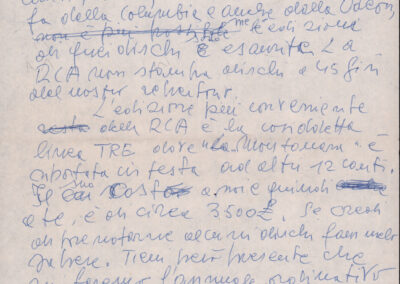 fa dalla Columbia e anche dalla Odeon,
me l'edizione
di quei dischi è esaurita. La
RCA non stampa dischi a 45 giri
del nostro
L'edizione più conveniente
della RCA è la cosiddetta
linea TRE dove "La Montanara" è
riportata in testa ad altri 12 canti.
Il suo costo a noi e quindi
a te, è di circa 3500£. Se credi
di prenotarne alcuni dischi fammelo
sapere. Tieni però presente che